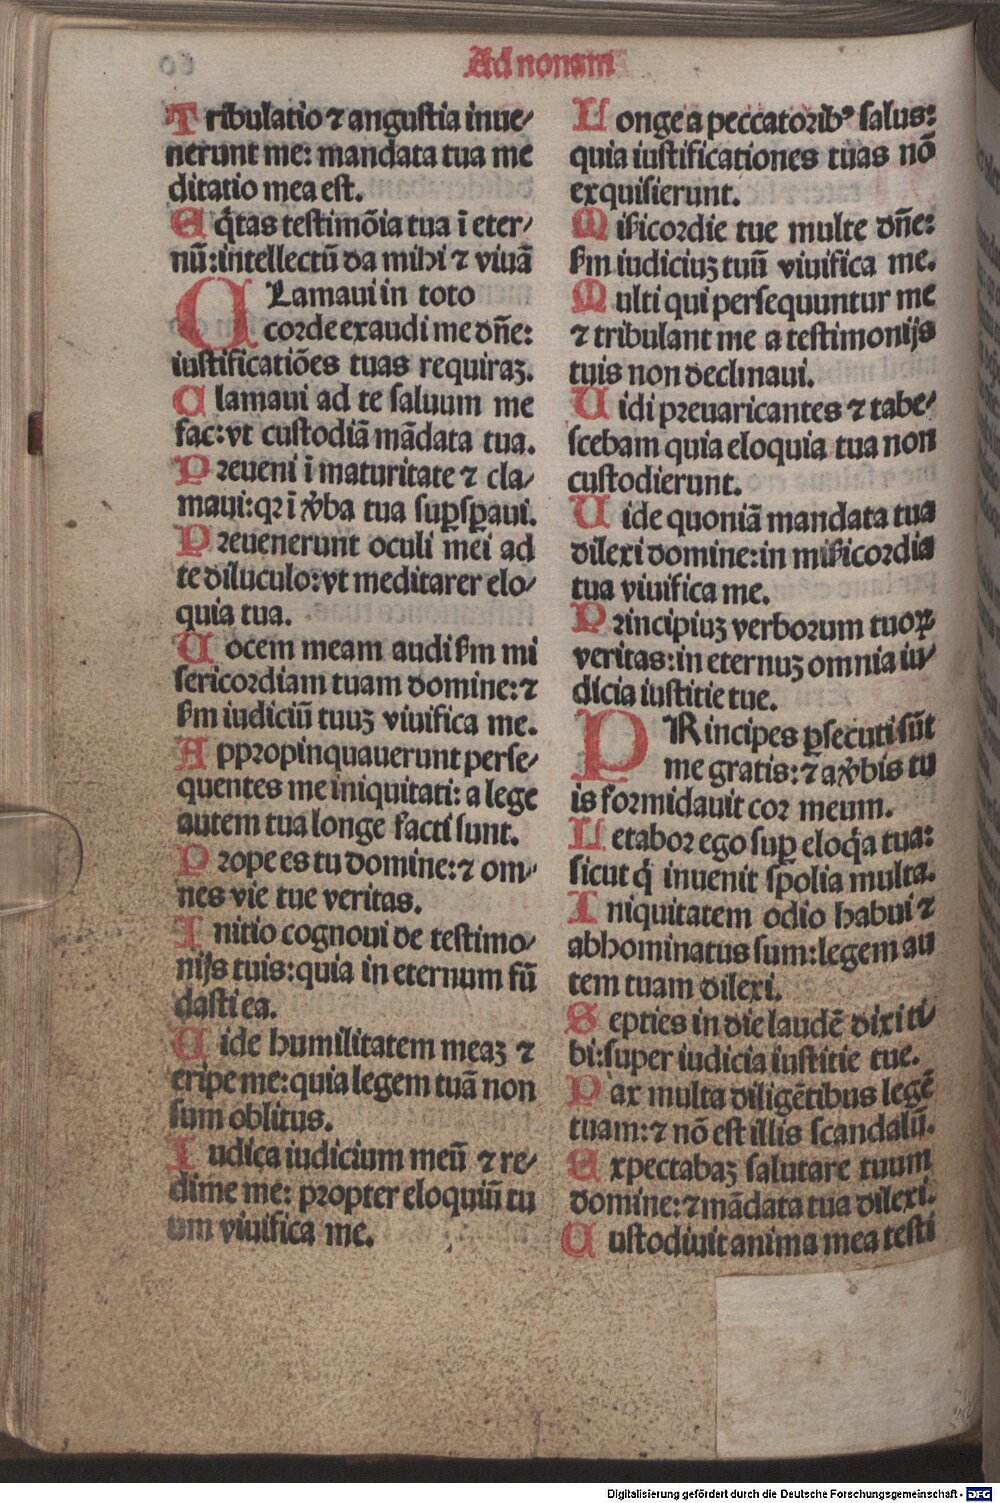 Ad nonam
Tribulatio ⁊ angustia inue⸗
nerunt me: mandata tua me
ditatio mea est.
Eq̃tas testimõia tua ĩ eter⸗
nũ: intellectũ da mihi ⁊ viuã
CLamaui in toto
corde exaudi me dñe:
iustificatiões tuas requiraꝫ.
Clamaui ad te saluum me
fac: vt custodiã mãdata tua.
Preueni ĩ maturitate ⁊ cla⸗
maui: qꝛ ĩ v̾ba tua suꝑsꝑaui.
Preuenerunt oculi mei ad
te diluculo: vt meditarer elo⸗
quia tua.
Uocem meam audi ẜm mi
sericordiam tuam domine: ⁊
ẜm iudiciũ tuuꝫ viuifica me.
Appropinquauerunt perse⸗
quentes me iniquitati: a lege
autem tua longe facti sunt.
Prope es tu domine: ⁊ om⸗
nes vie tue veritas.
Initio cognoui de testimo⸗
nijs tuis: quia in eternum fũ
dasti ea.
Uide humilitatem meaꝫ ⁊
eripe me: quia legem tuã non
sum oblitus.
Iudica iudicium meũ ⁊ re⸗
dime me: propter eloquiũ tu
um viuifica me.
Longe a peccatoribꝰ salus:
quia iustificationes tuas nõ
exquisierunt.
Miẜicordie tue multe dñe:
ẜm iudiciuꝫ tuũ viuifica me.
Multi qui persequuntur me
⁊ tribulant me a testimonijs
tuis non declinaui.
Uidi preuaricantes ⁊ tabe⸗
scebam quia eloquia tua non
custodierunt.
Uide quoniã mandata tua
dilexi domine: in miẜicordia
tua viuifica me.
Principiuꝫ verborum tuoꝝ
veritas: in eternuꝫ omnia iu⸗
dicia iustitie tue.
PRincipes ꝑsecuti sũt
me gratis: ⁊ a v̾bis tu
is formidauit cor meum.
Letabor ego suꝑ eloq̃a tua:
sicut q̃ inuenit spolia multa.
Iniquitatem odio habui ⁊
abhominatus sum: legem au
tem tuam dilexi.
Septies in die laudẽ dixi ti⸗
bi: super iudicia iustitie tue.
Pax multa diligẽtibus legẽ
tuam: ⁊ nõ est illis scandalũ.
Expectabaꝫ salutare tuum
domine: ⁊ mãdata tua dilexi.
Custodiuit anima mea testi
Digitalisierung gefördert durch die Deutsche Forschungsgemeinschaft - DFG